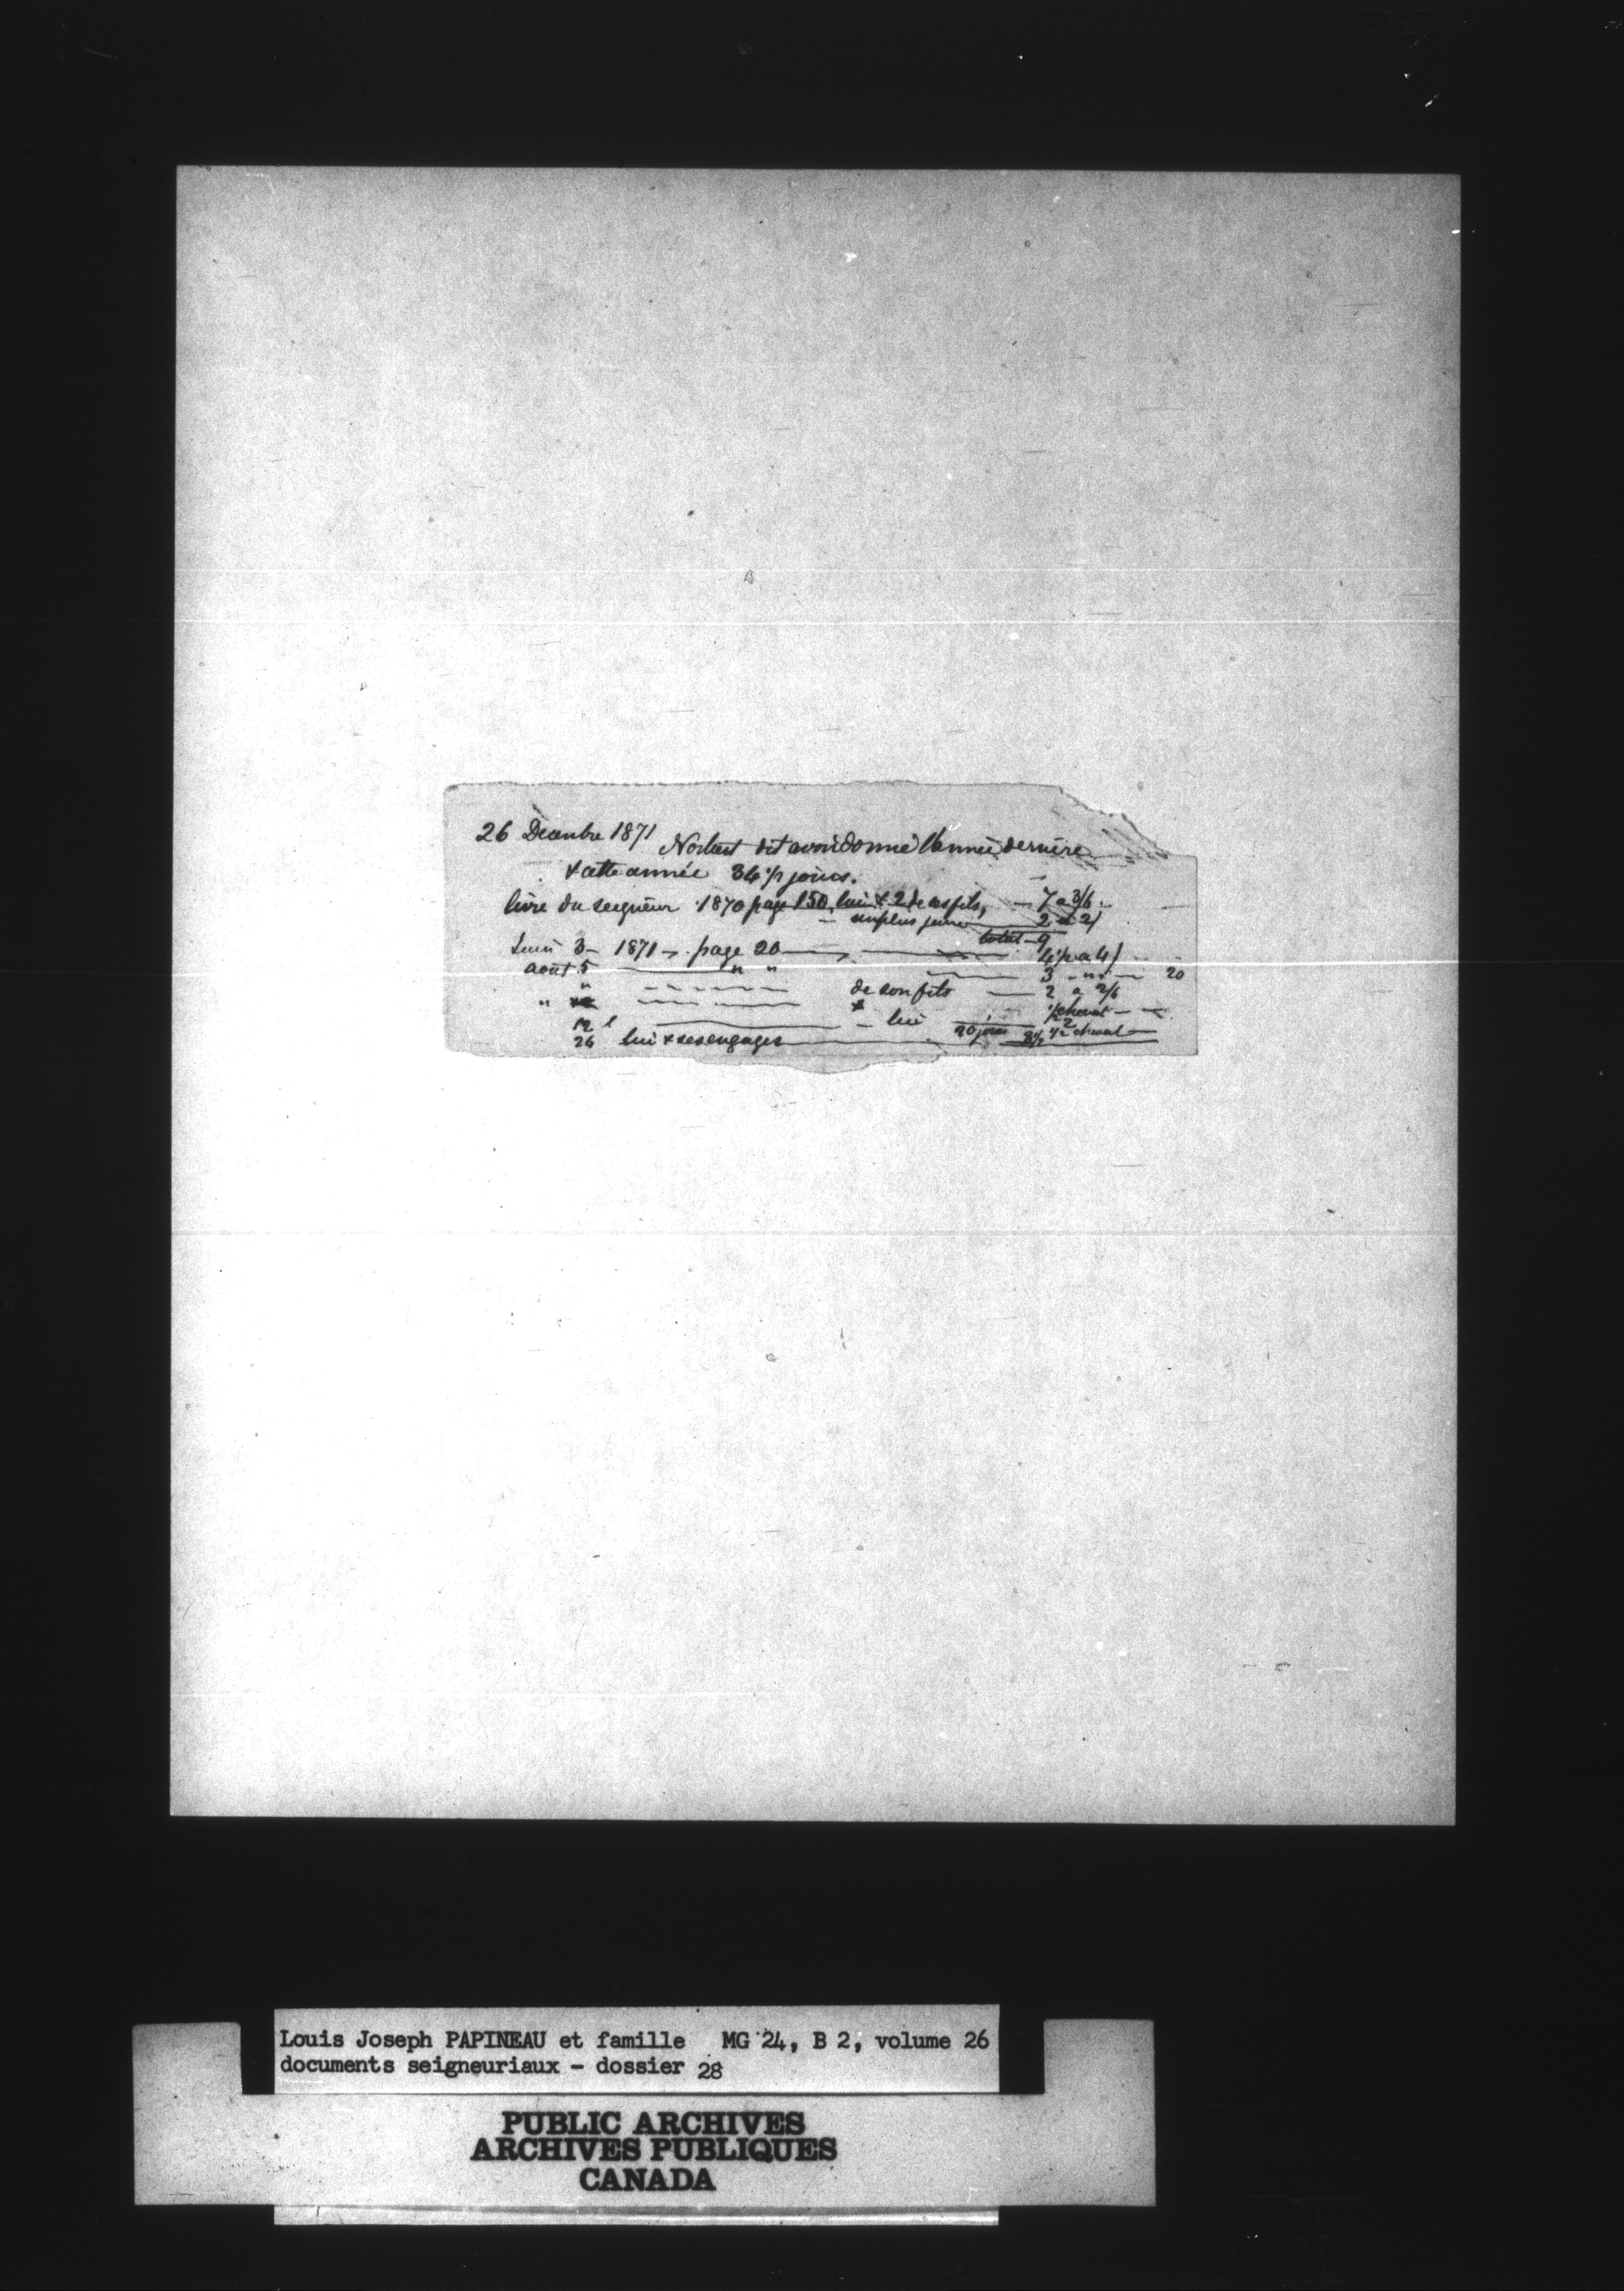 26 Decembre 1871 Norbert dit avoir donné l'année dernière
& cette année 34 1/2 jours.
livre du seigneur 1870 page 150, lui & 2 de ses fils, — 7 a 3/6
— un plus jeune 2 a 2/
total — 9
3 — 1871 — page 20 — 4 1/2 a 4/
août 5 — " " — 3 - " - 20
" — de son fils — 2 a 2/6
" — 1/2 cheval —
12 — lui — 2
26 lui & ses engagés — 20 jours 8 1/2 1/2 cheval —
Louis Joseph PAPINEAU et famille MG 24, B 2, volume 26
documents seigneuriaux - dossier 28
PUBLIC ARCHIVES
ARCHIVES PUBLIQUES
CANADA